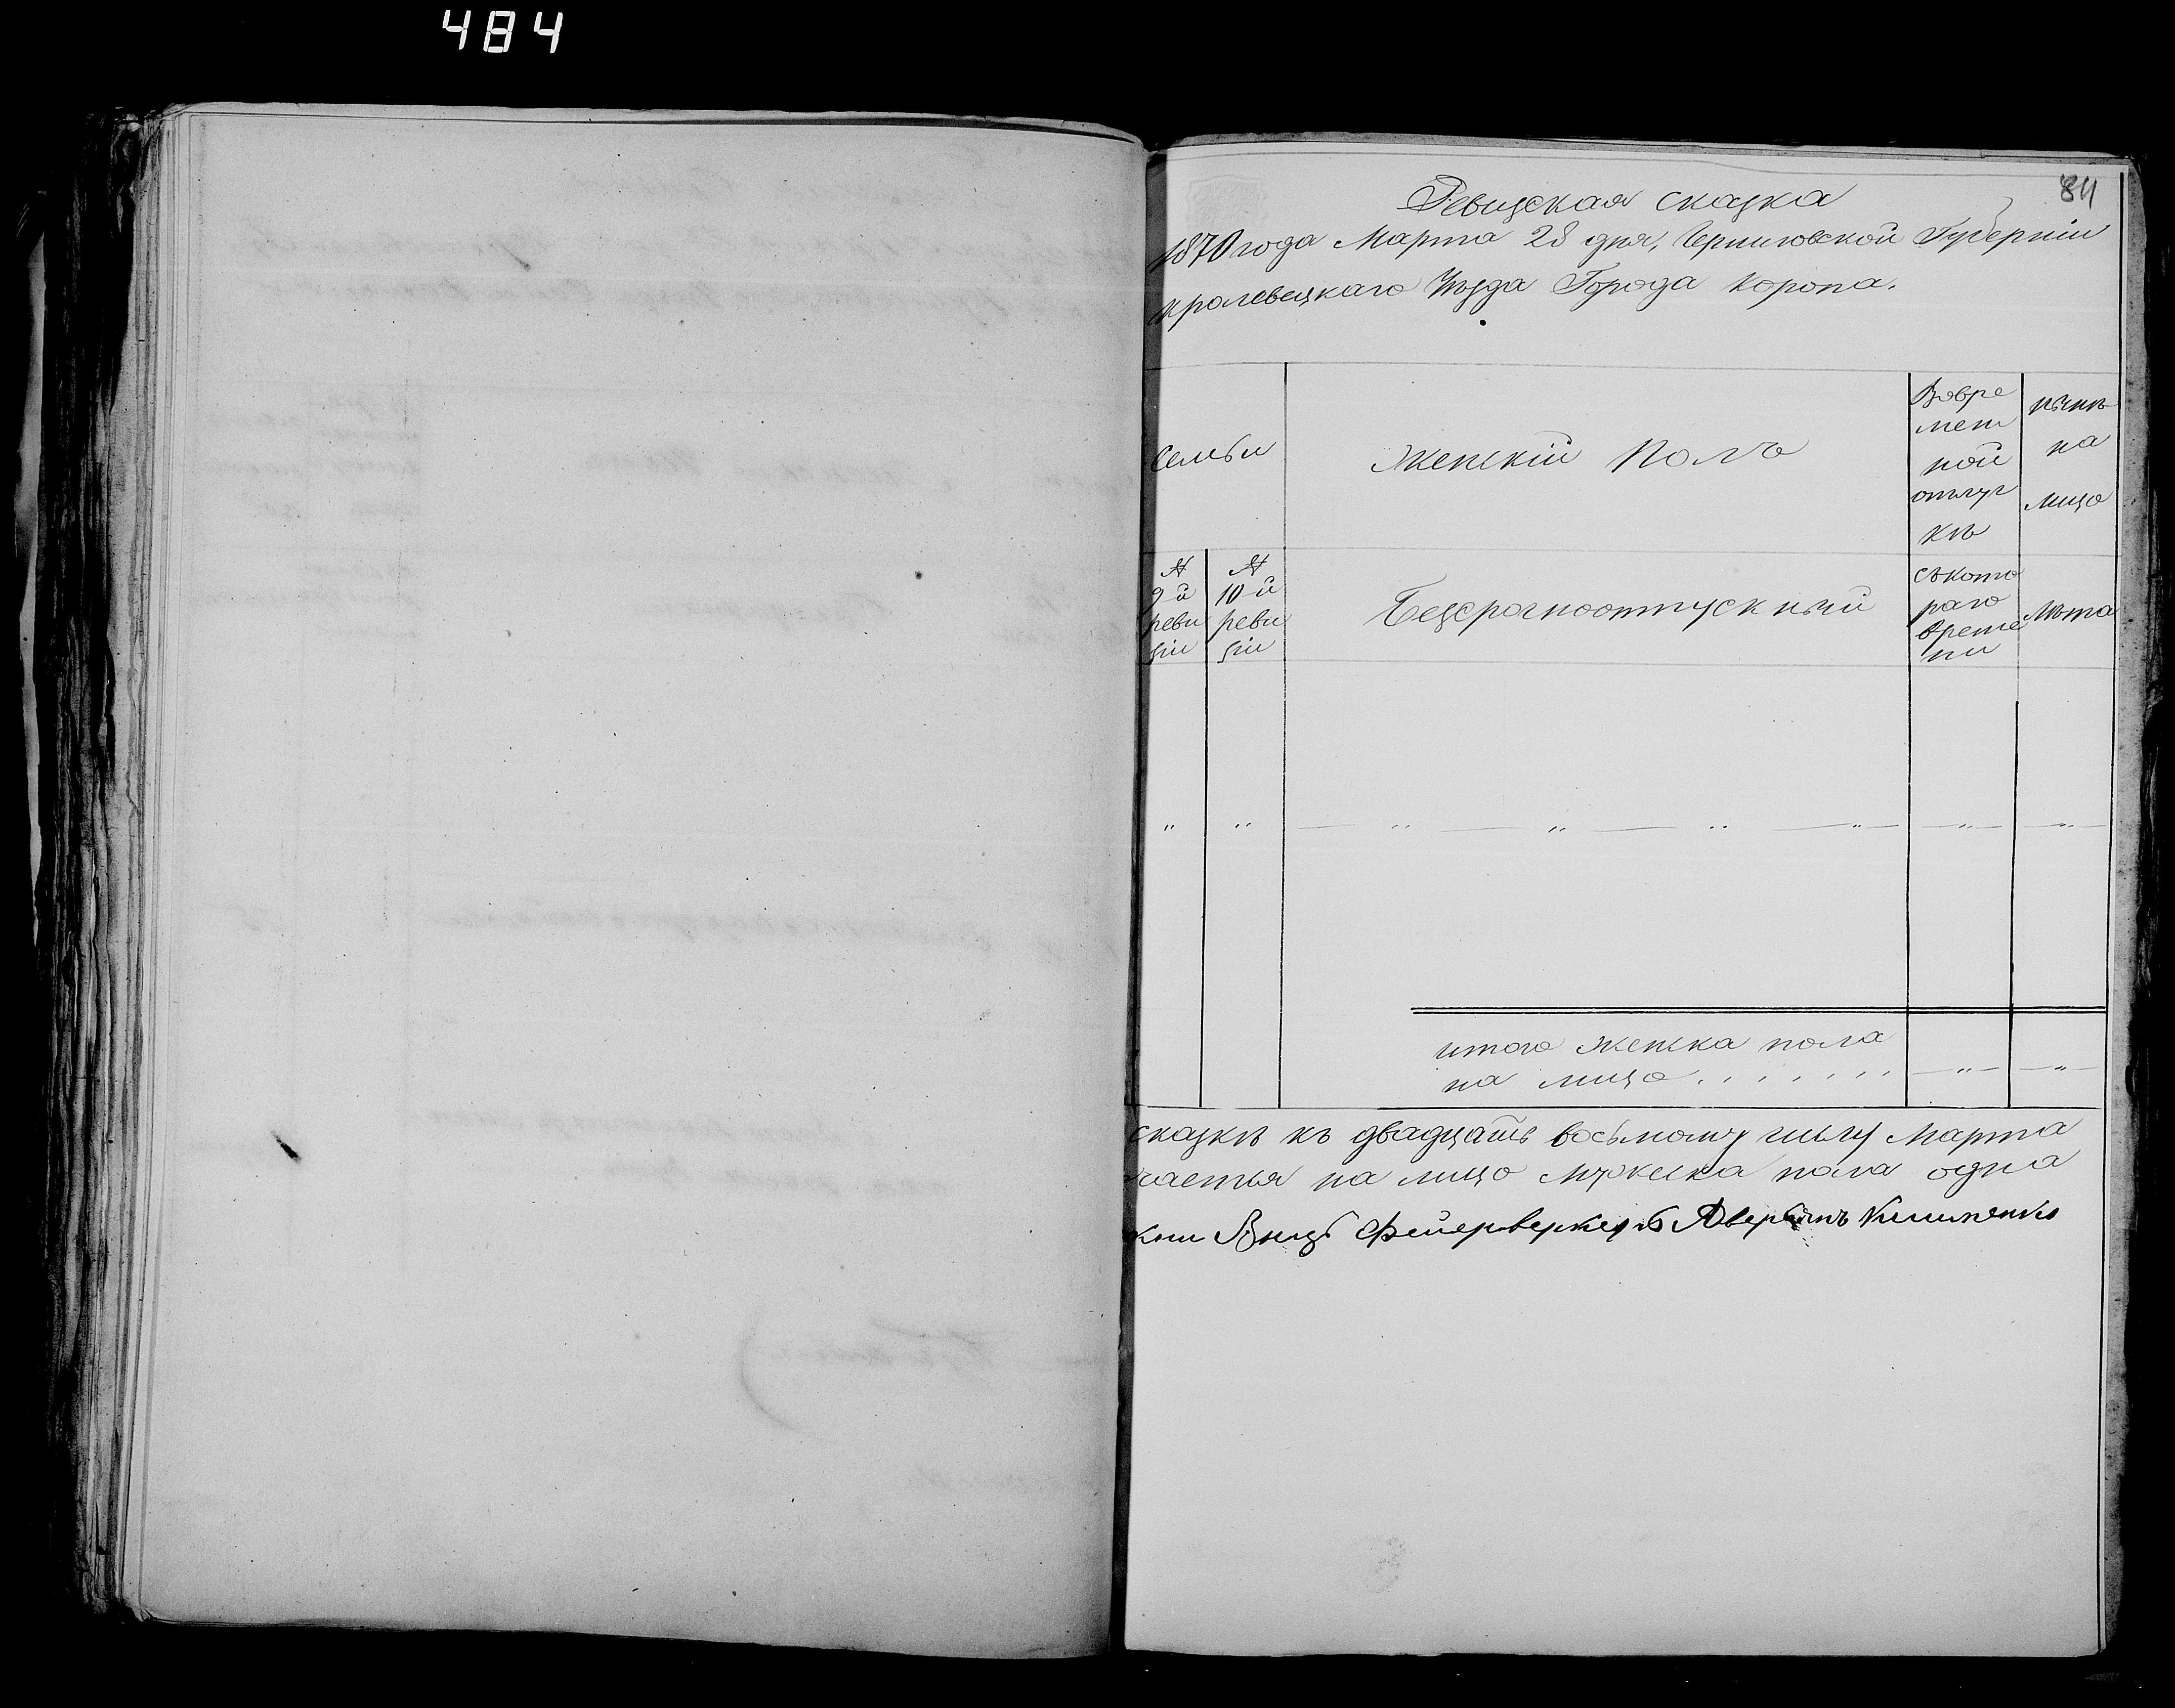 484
84
Ревизская сказка
1870 года Марта 28 дня, Черниговской Губерніи
кролевецкаго Уѣзда Города Коропа.
Семьи
Женскій Полъ
Вовре
мен
ной
отлуч
кѣ
нынѣ
на
лицо
№
9й
реви
зіи
№
10й
реви
зіи
Безсрочноотпускный
съ кото
раго
време
ни
Лѣта
итого женска пола
на лицо
сказкѣ къ двадцать восьмому числу Марта
чается на лицо мужеска пола одна
Фейерверкеръ Аверьянъ